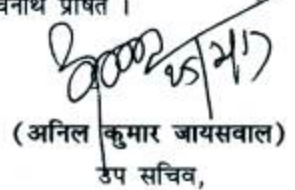 प्रेषित ।
(अनिल कुमार जायसवाल)
उप सचिव,